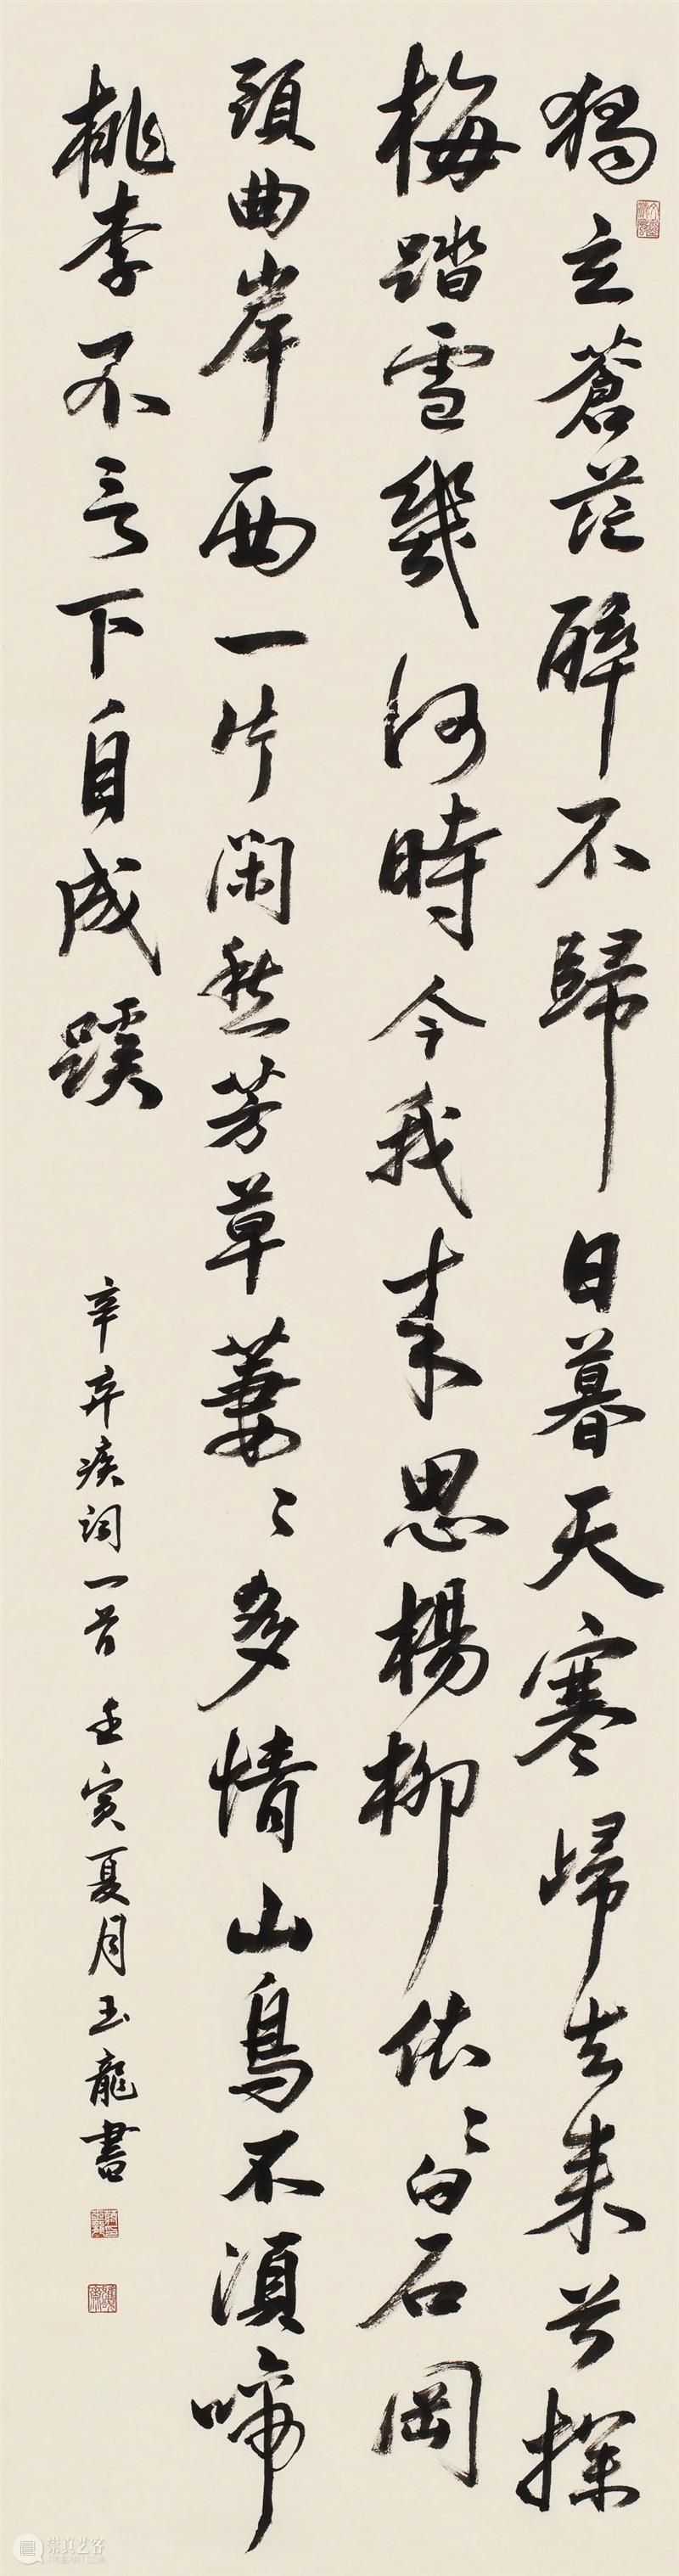 獨立蒼茫醉不歸日暮天寒歸去來兮探
梅踏雪幾何時今我來思楊柳依〻白石岡
頭曲岸西一片閑愁芳草萋〻多情山鳥不須啼
桃李不言下自成蹊
辛弃疾词一首 壬寅夏月玉龍書
崇真艺客